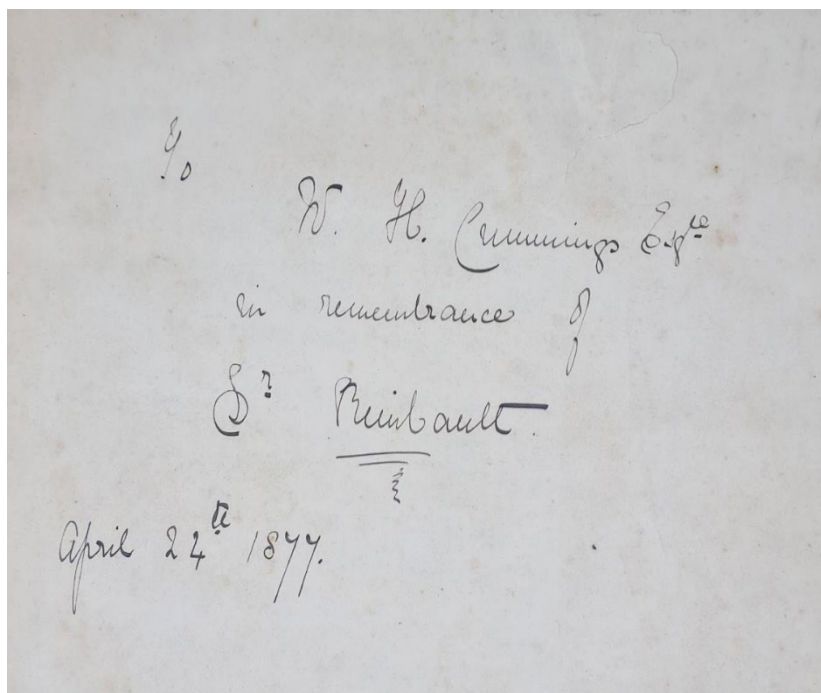 To
W. H. Cummings Esqre
in remembrance of
Dr Rimbault.
April 24th 1877.